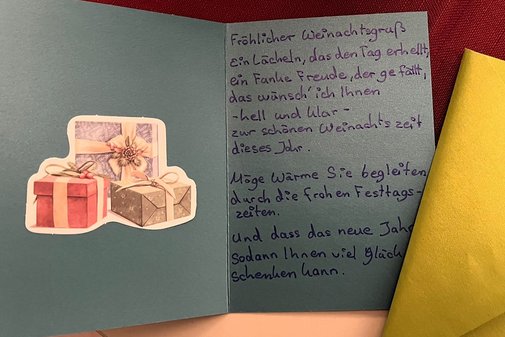 Fröhlicher Weinachtsgruß
Ein Lächeln, das den Tag erhellt,
ein Funke Freude, der gefällt,
das wünsch' ich Ihnen
-hell und klar-
zur schönen Weinachtszeit
dieses Jahr.
Möge Wärme Sie begleiten
durch die frohen Festtags-
zeiten.
Und dass das neue Jahr
sodann Ihnen viel Glück
schenken kann.